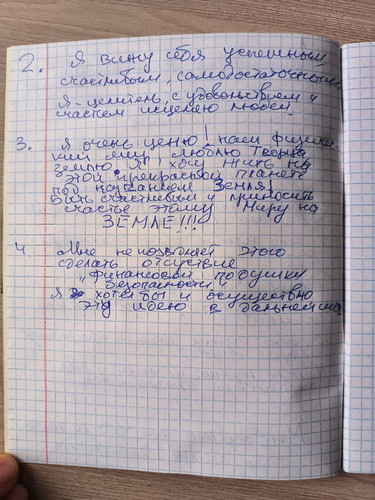 2. Я вижу себя успешным
счастливым, самодостаточным.
Я - целитель, с удовольствием и
счастьем исцеляю людей.
3. Я очень ценю наш физичес-
кий мир, люблю Творца
землю. Я хочу жить на
этой прекрасной планете
под названием Земля!
Быть счастливым и приносить
счастье этому Миру на
ЗЕМЛЕ!!!
4. Мне не позволяет этого
сделать отсутствие
"финансовой подушки
безопасности".
Я хотел бы и осуществлю
эту идею в дальнейшем